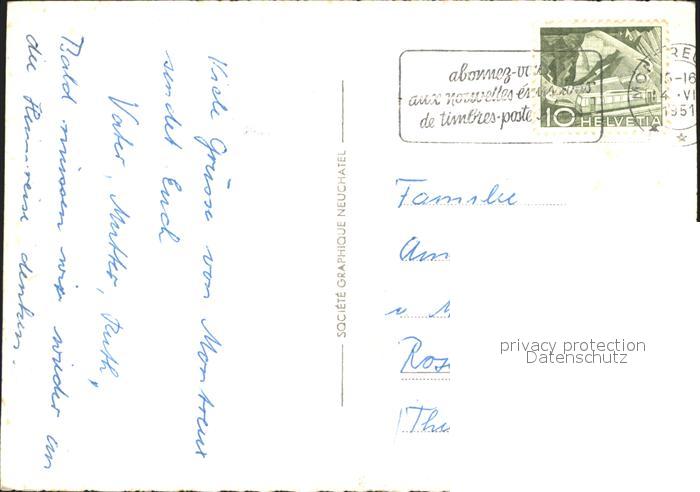 Viele Grüsse von Montreux
sendet Euch
Vater, Mutter, Ruth,
Bald müssen wir wieder an
die Heimreise denken.
SOCIÉTÉ GRAPHIQUE NEUCHATEL
abonnez-v
aux nouvelles émissions
de timbres-poste
10 HELVETIA
MONTREU
15-16
4 VI
1951
Familie
Am
u M
Ros
(The
privacy protection
Datenschutz